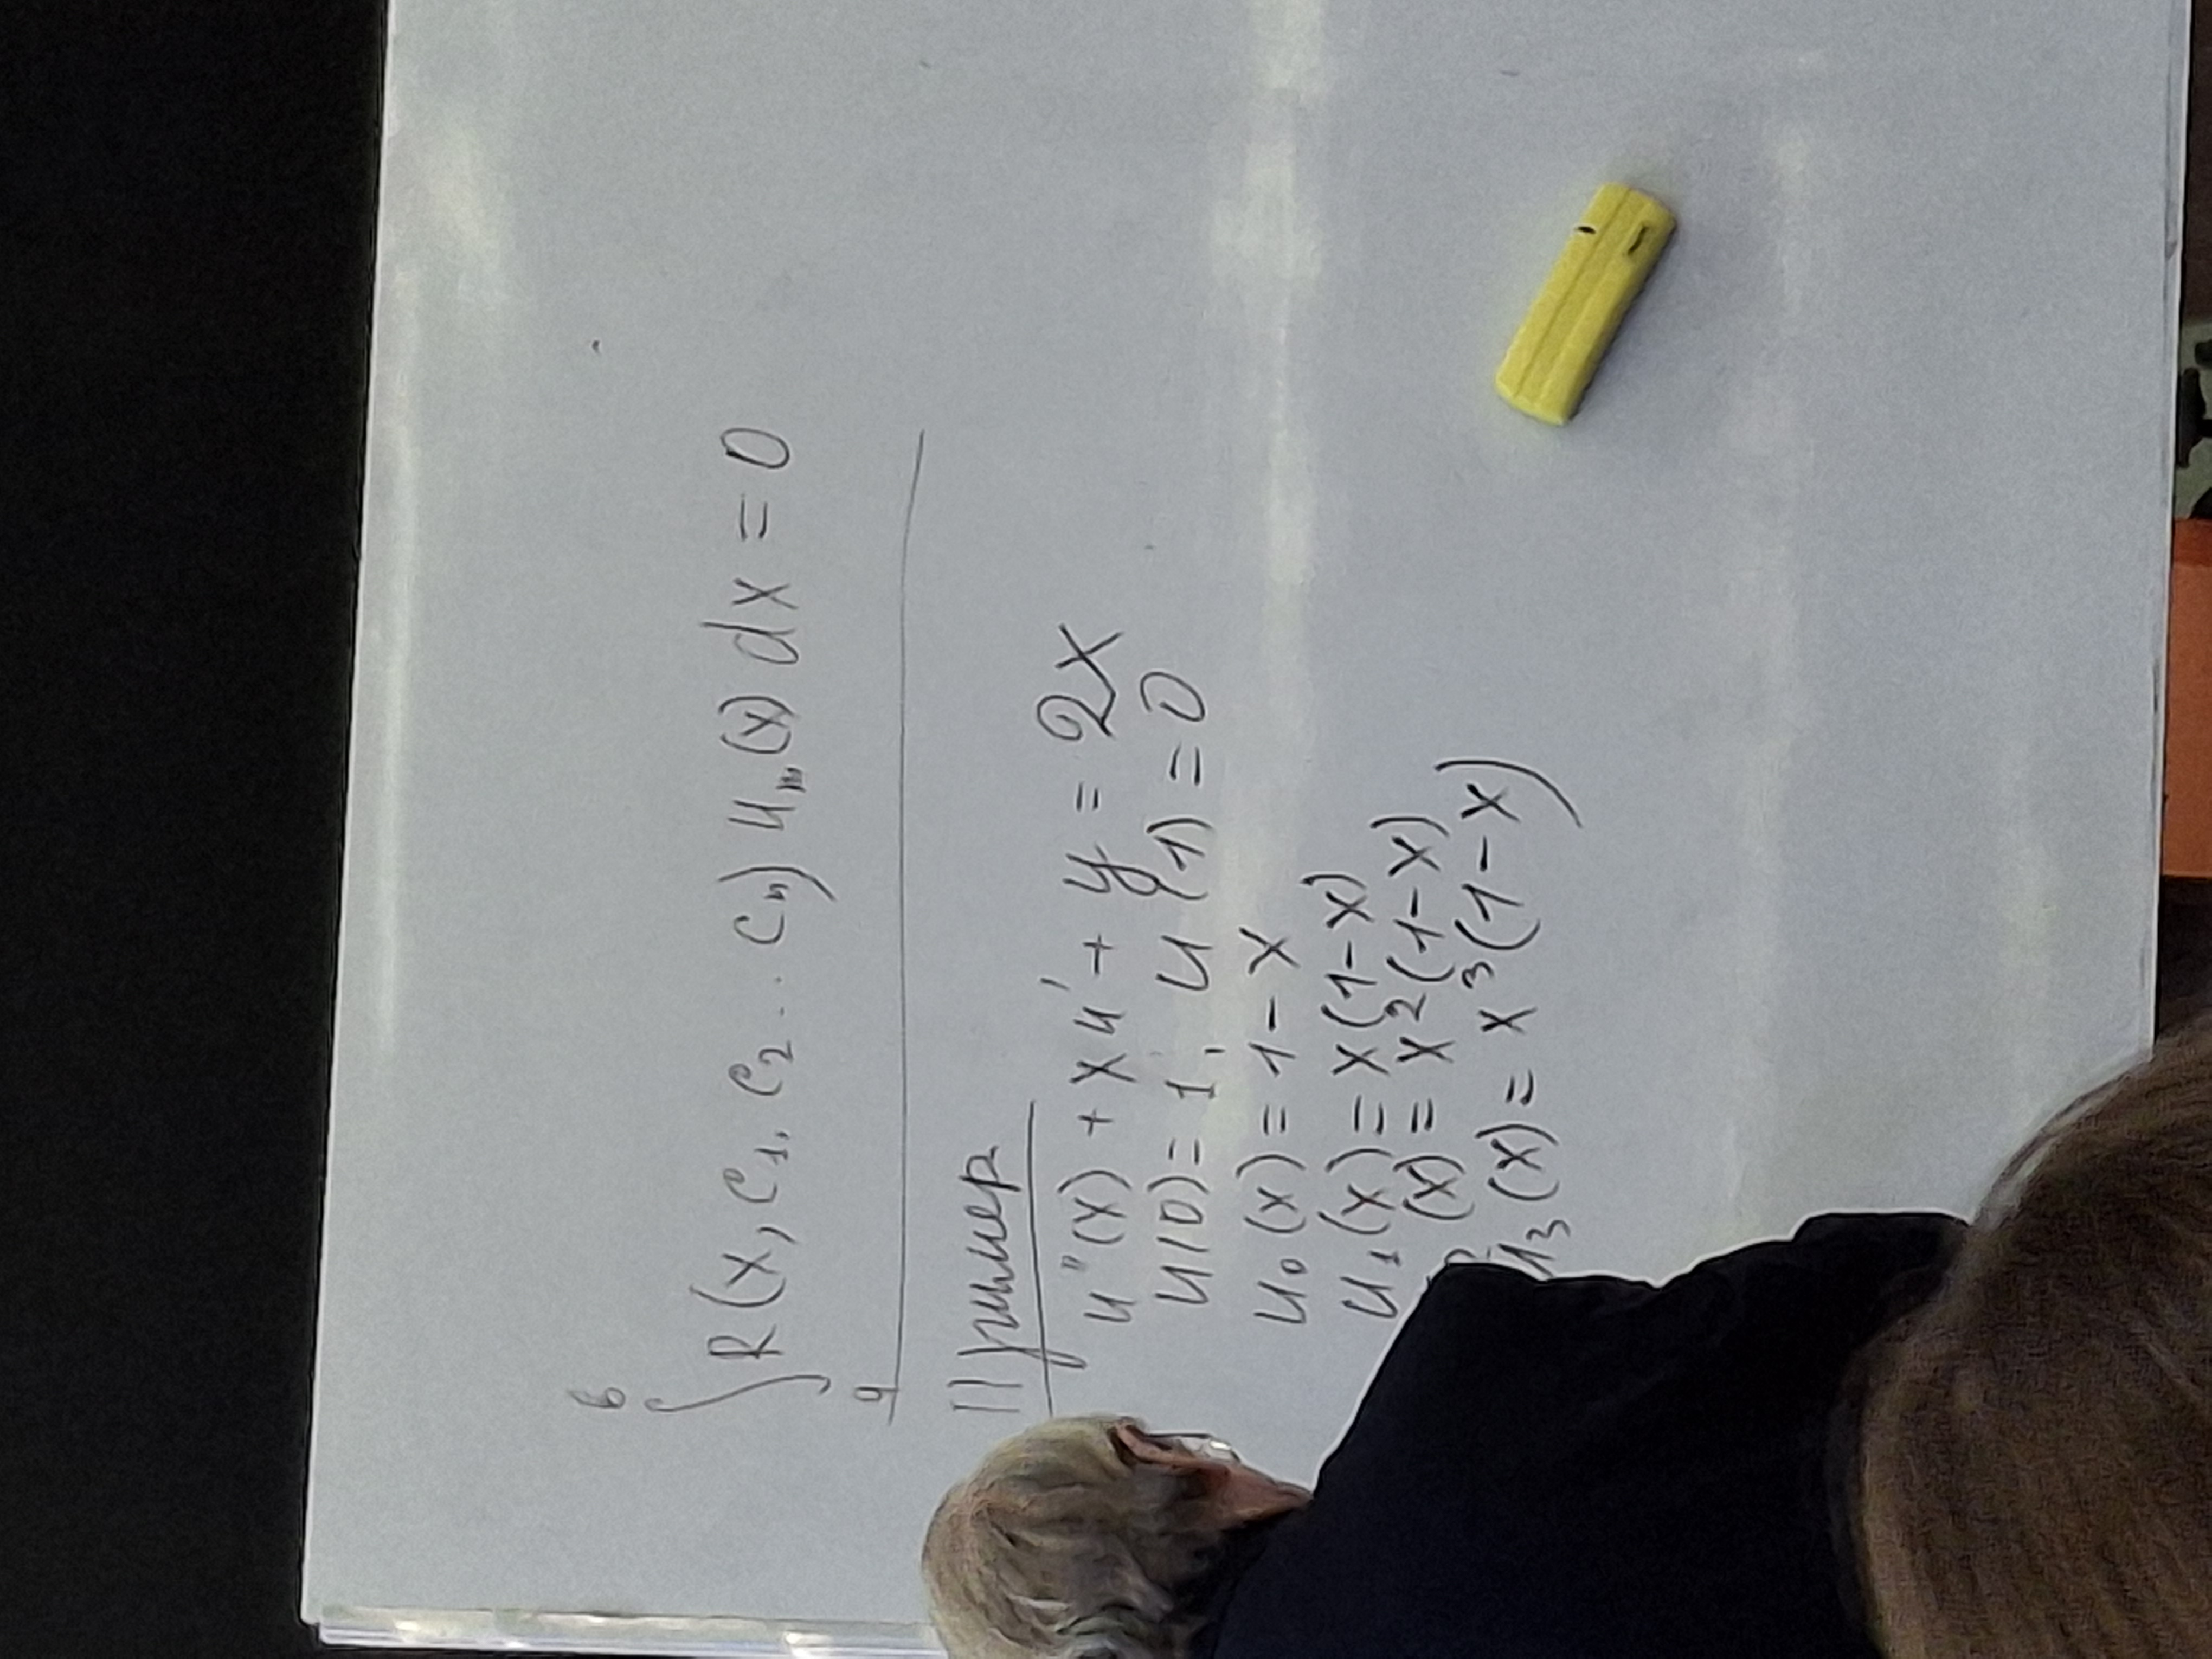 ∫ₐᵇ R(x, c₁, c₂ .. cₙ) uₘ(x) dx = 0
Пример
u''(x) + xu' + y = 2x
u(0) = 1, u(1) = 0
u₀(x) = 1 - x
u₁(x) = x(1-x)
₂(x) = x²(1-x)
u₃(x) = x³(1-x)